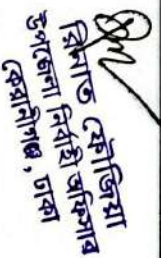 রিনাত ফৌজিয়া
উপজেলা নির্বাহী অফিসার
কেরানীগঞ্জ, ঢাকা